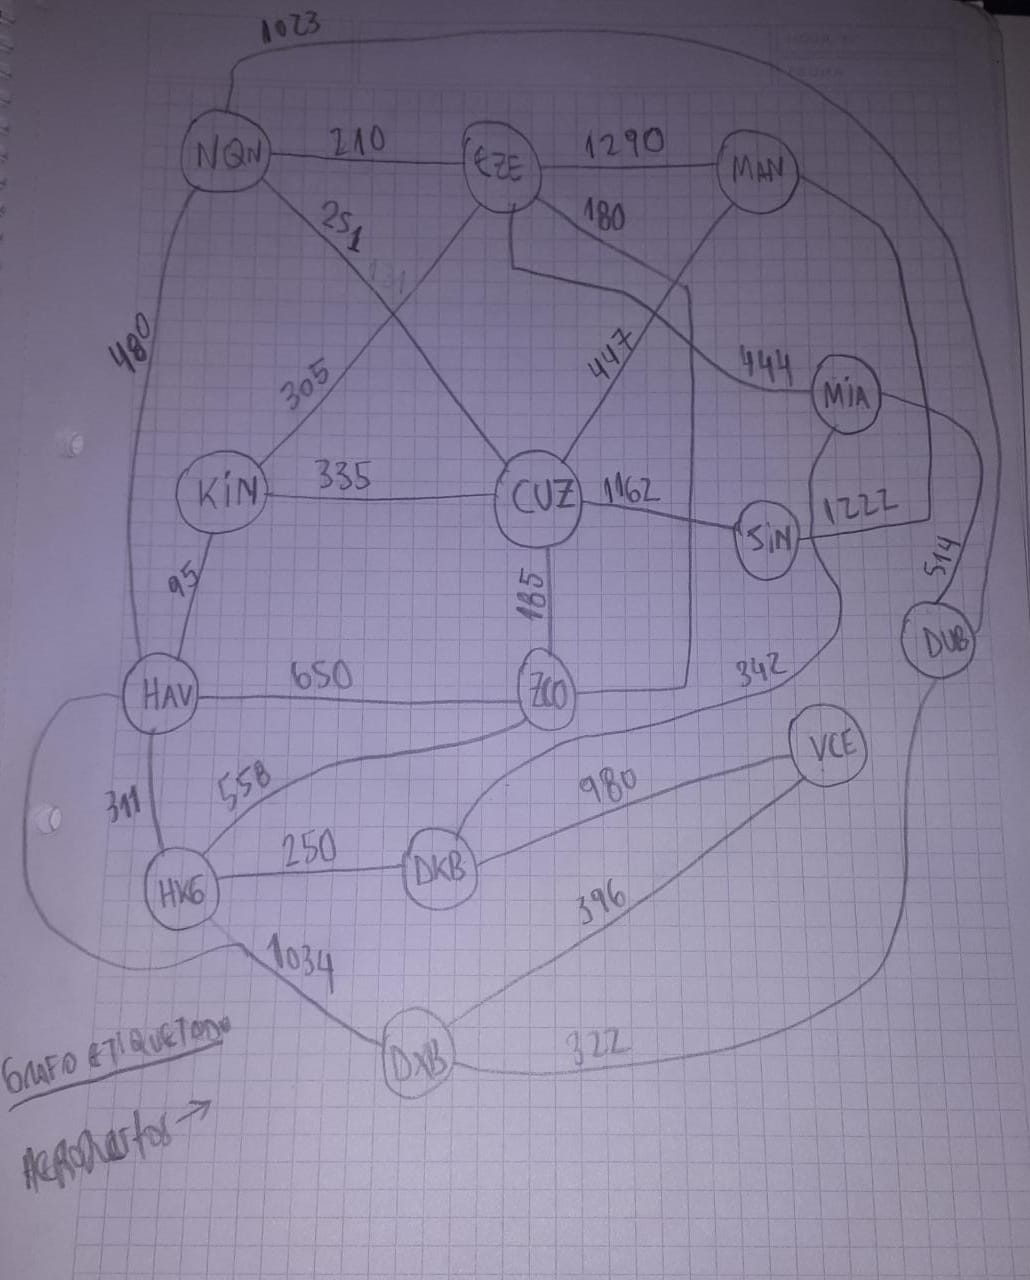 1023
NQN 210 EZE 1290 MAN
180
251
480
447
444 MIA
305
KIN 335 CUZ 1162 SIN 1222
95
185
514
DUB
HAV 650 ZCO
342
VCE
558
311
980
250
HKG DKB
396
1034
322
DXB
GRAFO ETIQUETADO
AEROPUERTOS →